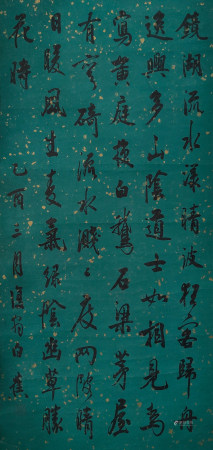 鏡湖流水漾晴波狂客歸舟
逸興多山陰道士如相見為
寫黃庭換白鵞石梁茅屋
有彎碕流水濺〻度兩陂晴
日暖風生麥氣綠陰幽草勝
花時 乙酉三月復翁白蕉